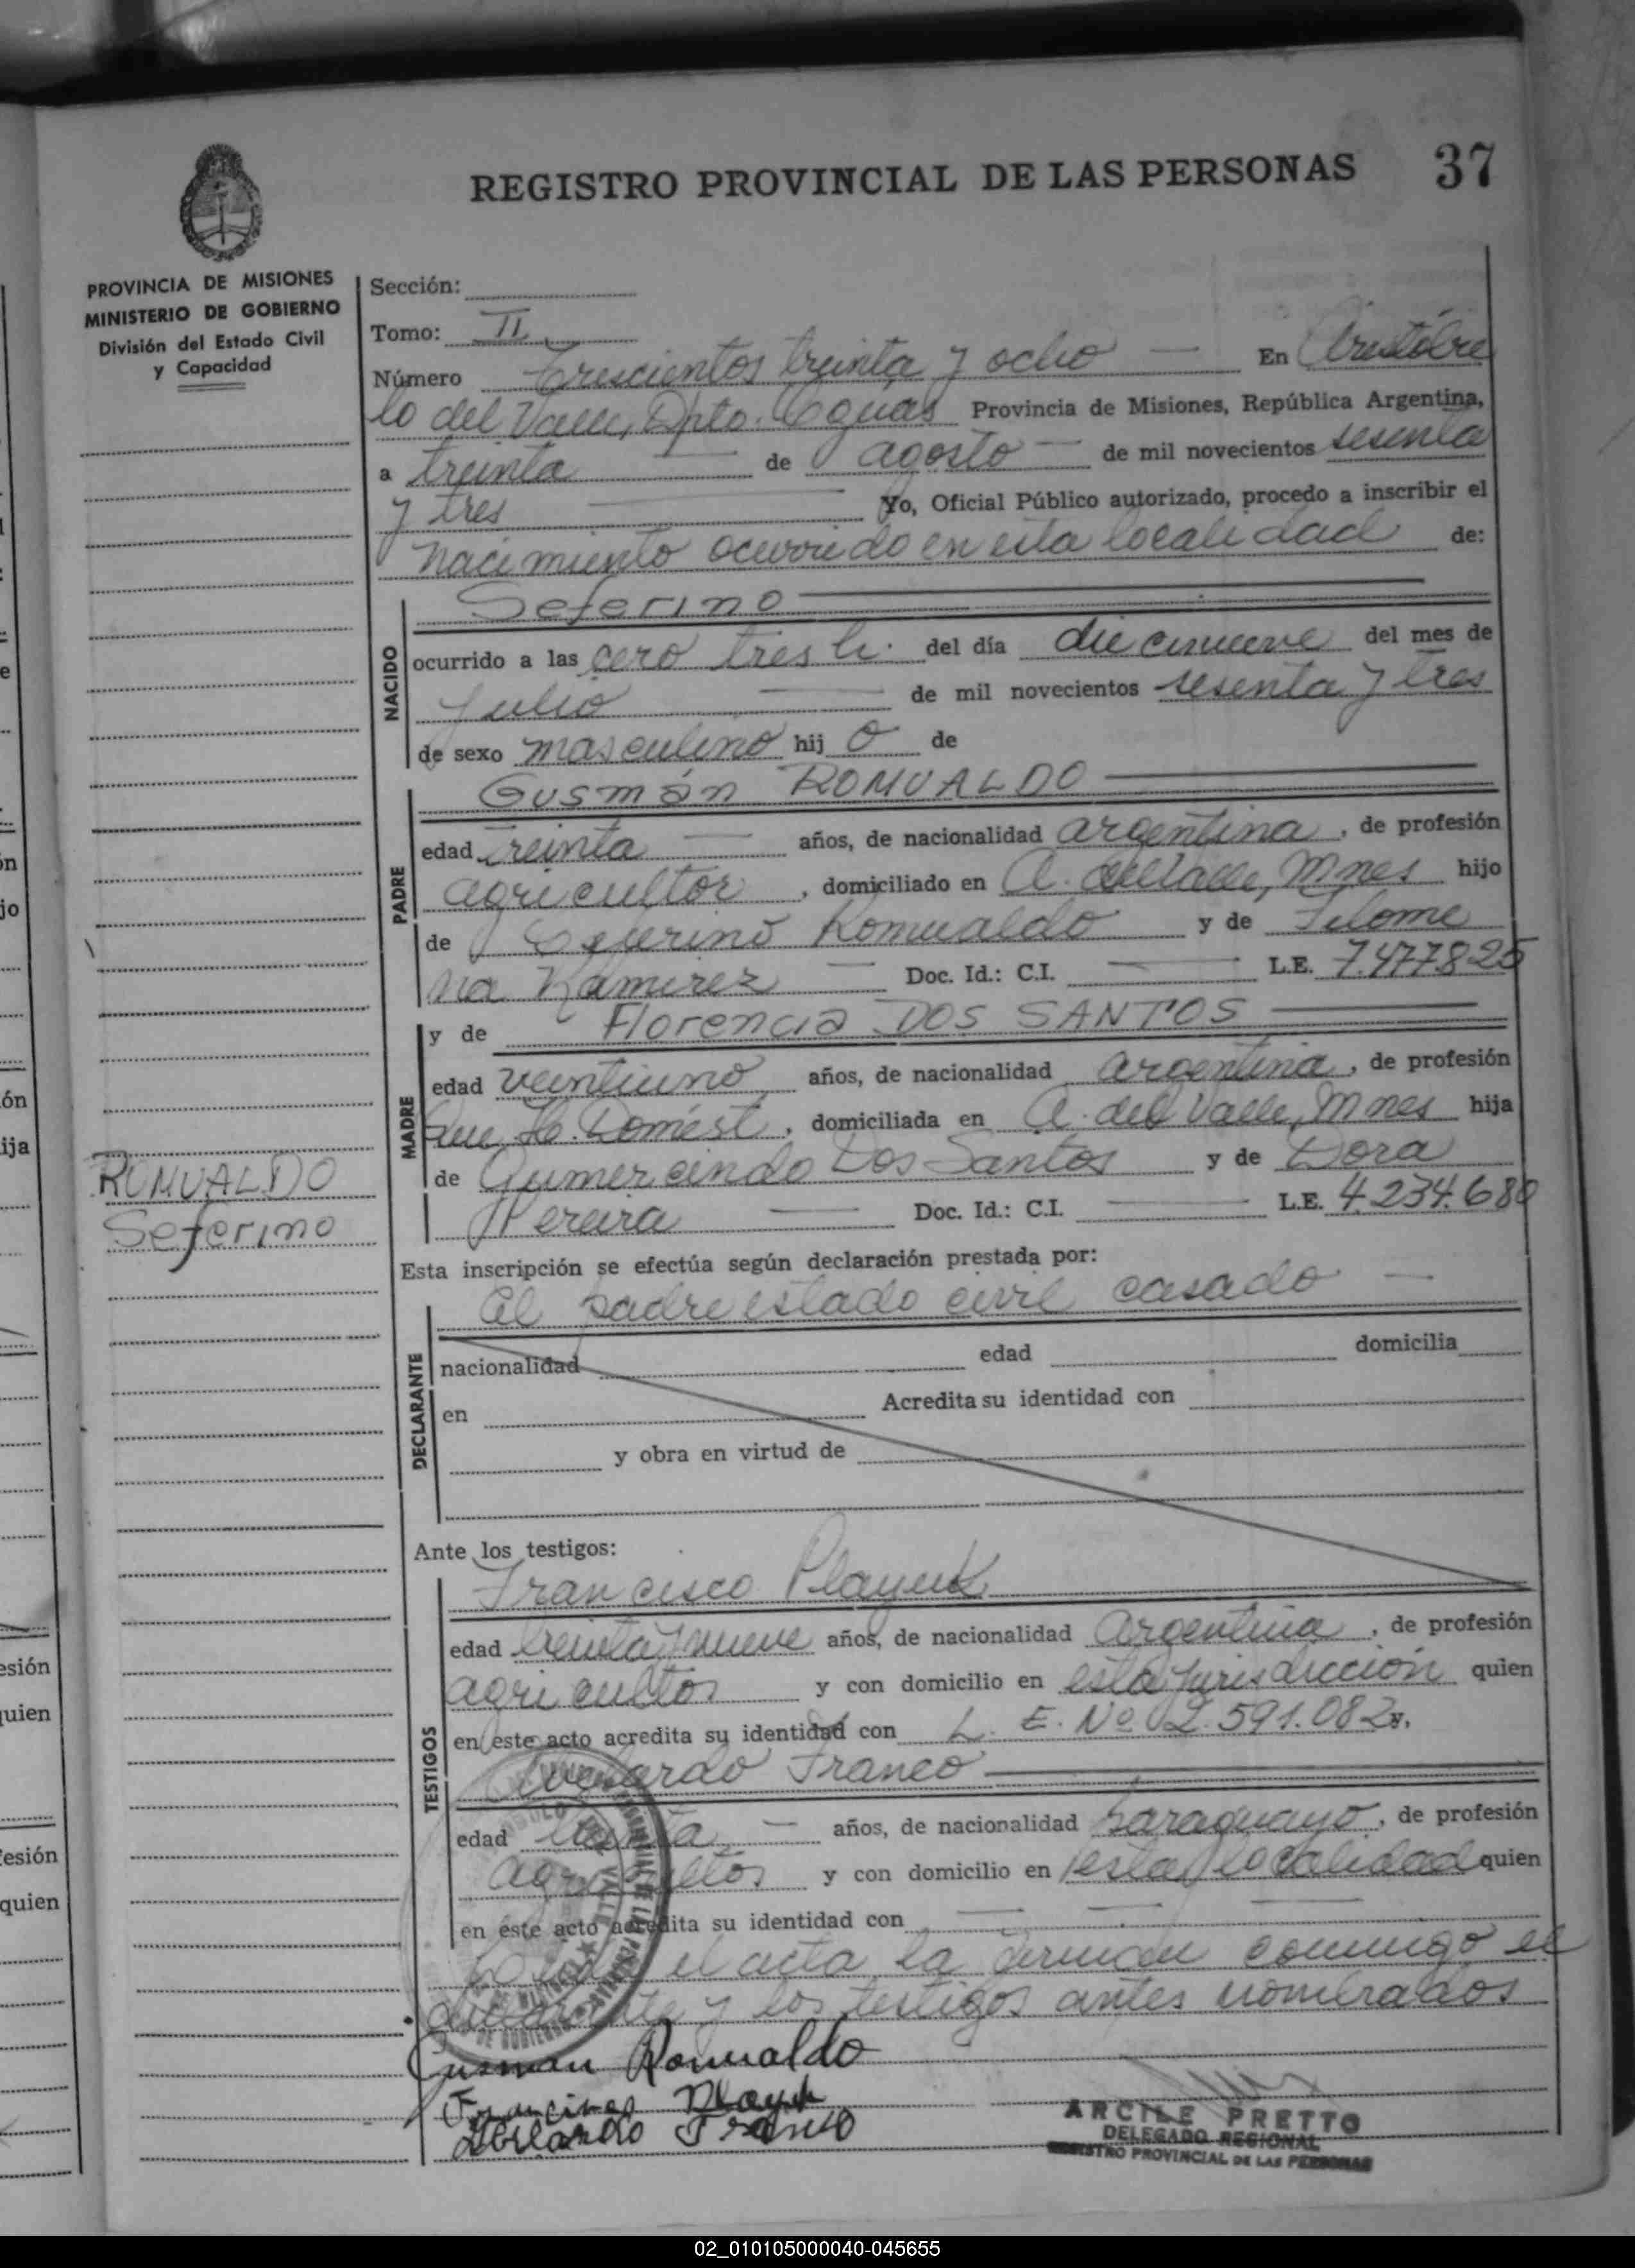 REGISTRO PROVINCIAL DE LAS PERSONAS 37
PROVINCIA DE MISIONES
MINISTERIO DE GOBIERNO
División del Estado Civil
y Capacidad
Sección:
Tomo: II
Número Trescientos treinta y ocho — En Aristóbu
lo del Valle, Dpto. Cguás Provincia de Misiones, República Argentina,
a treinta — de agosto — de mil novecientos sesenta
y tres — Yo, Oficial Público autorizado, procedo a inscribir el
nacimiento ocurrido en esta localidad de:
NACIDO
Seferino
ocurrido a las cero tres h. del día diecinueve del mes de
Julio — de mil novecientos sesenta y tres
de sexo masculino hij o de
PADRE
Gusmán ROMUALDO
edad treinta — años, de nacionalidad argentina, de profesión
agricultor, domiciliado en A. del Valle, Mnes hijo
de Ceferino Romualdo y de Filome
na Ramirez — Doc. Id.: C.I. — L.E. 7.477825
MADRE
y de Florencia DOS SANTOS
edad veintiuno años, de nacionalidad argentina, de profesión
Que. H. Domést., domiciliada en A. del Valle, Mnes hija
de Gumercindo Dos Santos y de Dora
Pereira — Doc. Id.: C.I. — L.E. 4.234.680
ROMUALDO
Seferino
Esta inscripción se efectúa según declaración prestada por:
DECLARANTE
El padre estado civil casado —
nacionalidad edad domicilia
en Acredita su identidad con
y obra en virtud de
Ante los testigos:
TESTIGOS
Francisco Playuk
edad treinta y nueve años, de nacionalidad Argentina, de profesión
agricultor y con domicilio en esta jurisdicción quien
en este acto acredita su identidad con L. E. Nº 2.591.082.
Abelardo Franco
edad treinta — años, de nacionalidad Paraguayo, de profesión
agricultor y con domicilio en esta localidad quien
en este acto acredita su identidad con — —
el acta, la firman conmigo el
declarante y los testigos antes nombrados
Gusman Romualdo
Francisco Playuk
Abelardo Franco
ARCILE PRETTO
DELEGADO REGIONAL
REGISTRO PROVINCIAL DE LAS PERSONAS
02_010105000040-045655